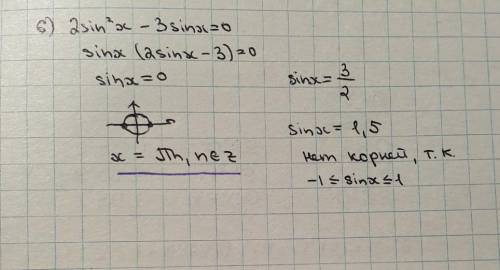 б) 2sin²x - 3sinx=0
sinx (2sinx - 3)=0
sinx = 0
x = πn, n∈z
sinx = 3/2
sinx = 1,5
нет корней, т.к.
-1 ≤ sinx ≤ 1